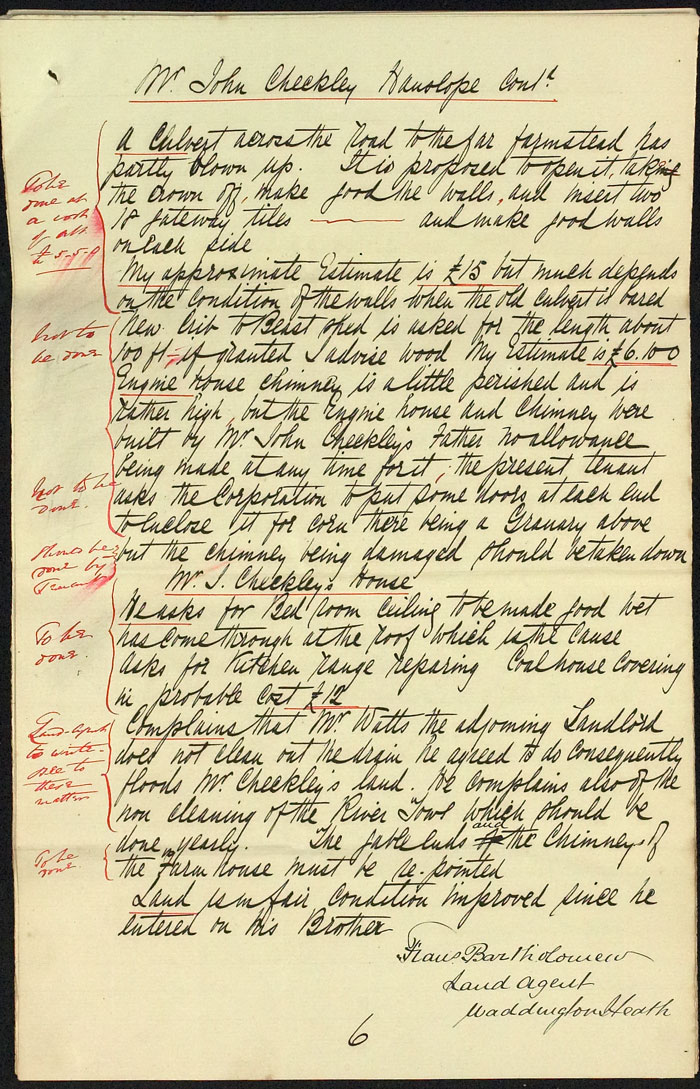 Mr. John Checkley Hanslope Contd
A Culvert across the road to the far farmstead has
partly blown up. It is proposed to open it, taking
the crown off, make good the walls, and insert two
18 gateway tiles ——— and make good walls
on each side
To be
done at
a cost
of abt
£5-5-0
My approximate Estimate is £15 but much depends
on the Condition of the walls when the old culvert is bared
New Crib to Beast shed is asked for the length about
100 ft - if granted I advise wood My Estimate is £6.10.0
Not to
be done
Engine House chimney is a little perished and is
rather high, but the Engine house and Chimney were
built by Mr. John Checkley's Father no allowance
being made at any time for it, the present tenant
asks the Corporation to put some doors at each end
to Enclose it for corn there being a Granary above
Not to be
done.
but the chimney being damaged should be taken down
Should be
done by
Tenant
Mr. J. Checkley's House
He asks for Bed room Ceiling to be made good wet
has come through at the roof which is the cause
Asks for Kitchen range reparing Coalhouse Covering
in probable Cost £12
To be
done.
Complains that Mr. Watts the adjoining Landlord
does not clean out the drain he agreed to do consequently
floods Mr Checkley's land. He complains also of the
non cleaning of the River Tow which should be
done yearly. The gable ends and the Chimneys of
Land Agent
to write
see to
these
matters
the Farm house must be re-pointed
To be
done.
Land is in fair condition improved since he
entered on his Brother
Frans Bartholomew
Land Agent
Waddington Heath
6